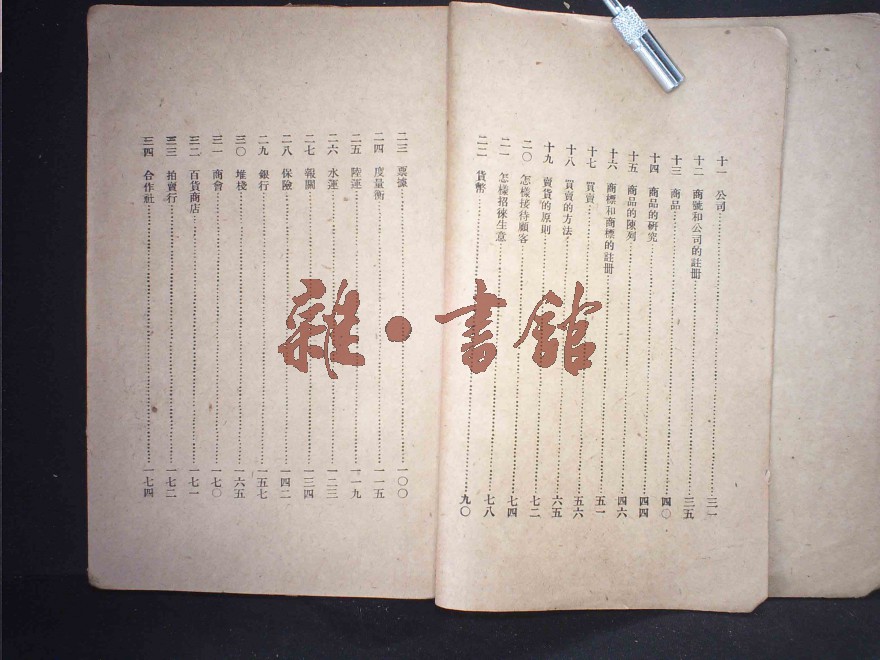 十一　公司……三一
十二　商號和公司的註册……三五
十三　商品……四〇
十四　商品的研究……四四
十五　商品的陳列……四六
十六　商標和商標的註册……五一
十七　買賣……五六
十八　買賣的方法……六五
十九　賣貨的原則……七二
二〇　怎樣接待顧客……七四
二一　怎樣招徠生意……七八
二二　貨幣……九〇
二三　票據……一〇〇
二四　度量衡……一一五
二五　陸運……一一九
二六　水運……一二三
二七　報關……一三四
二八　保險……一四二
二九　銀行……一五七
三〇　堆棧……一六五
三一　商會……一七〇
三二　百貨商店……一七一
三三　拍賣行……一七二
三四　合作社……一七四
雜·書館